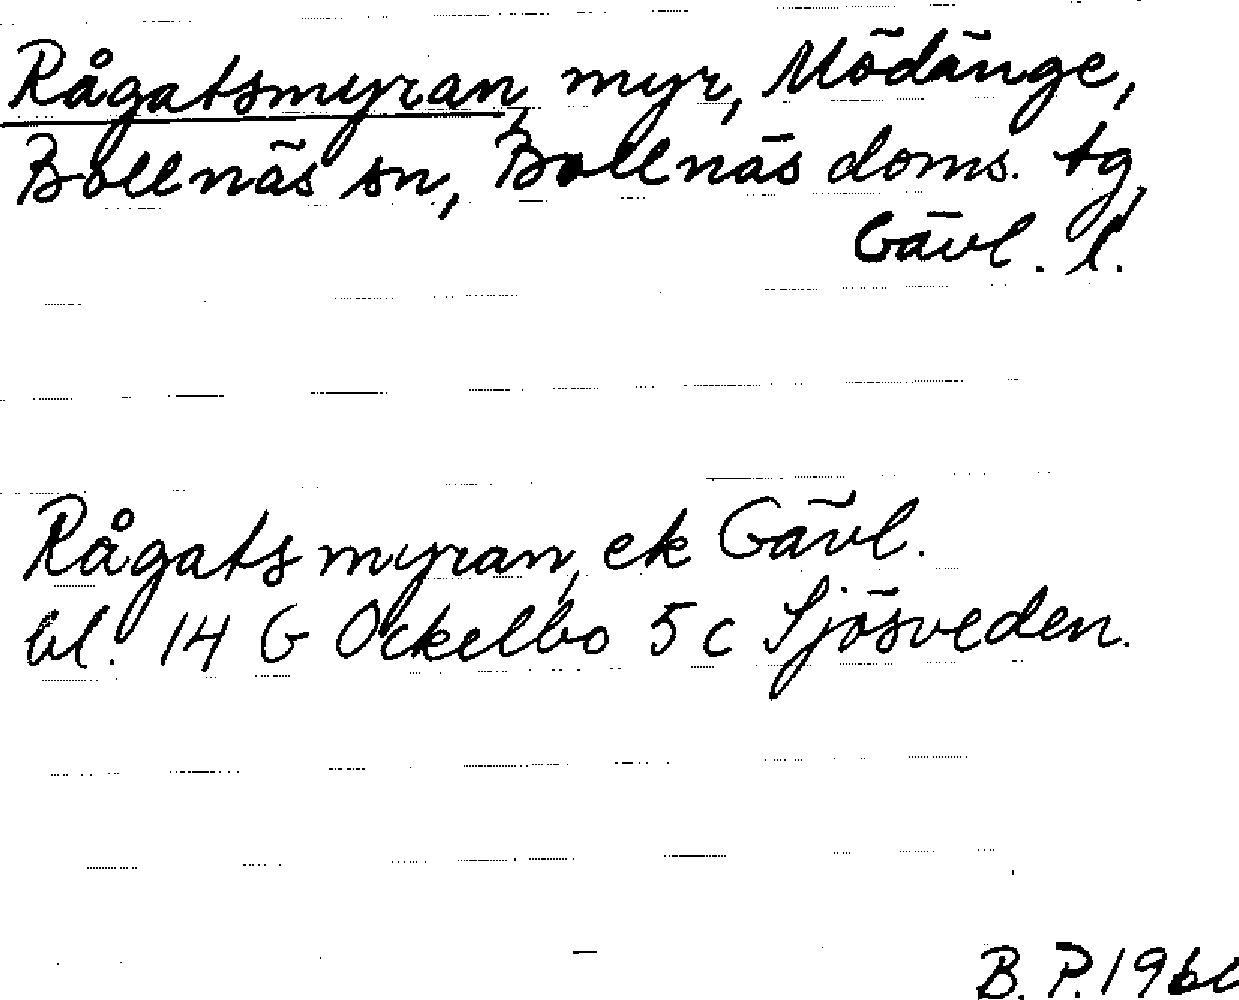 Rågatsmyran, myr, Mödänge,
Bollnäs sn, Bollnäs doms. tg,
Gävl. l.
Rågatsmyran, ek Gävl.
bl. 14 G Ockelbo 5 c Sjösveden.
B. P. 196